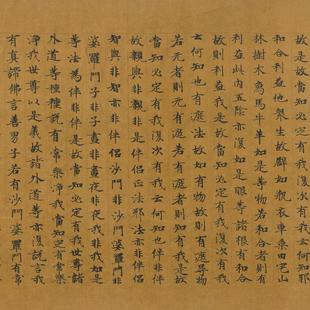 故是故當知必定有我復次有我云何知耶
和合利益他衆生故譬如瓶衣車乘田宅山
林樹木象馬牛羊如是等物若和合者則有
利益此內五陰亦復如是眼等諸根有和合
故則利益我是故當知必定有我復次有我
云何知也有遮法故如有物故則有遮导物
若无者則无有遮若有遮者則知有我是故
當知必定有我復次有我云何知也伴非伴
故親與非親非是伴侶正法邪法亦非伴侶
智與非智亦非伴侶沙門非沙門婆羅門非
婆羅門子非子晝非晝夜非夜我非我如是
等法為伴非伴是故當知必定有我世尊諸
外道等種種說有常樂我淨當知定有常樂
我淨世尊以是義故諸外道等亦復說言我
有真諦佛言善男子若有沙門婆羅門有常